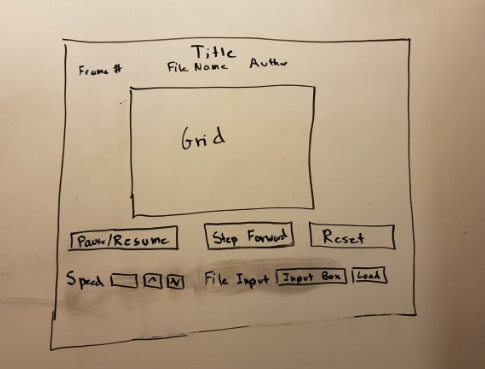 Title
Frame # File Name Author
Grid
Pause/Resume Step Forward Reset
Speed ^ v File Input Input Box Load